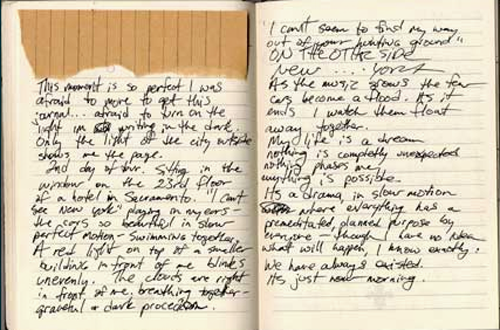 This moment is so perfect I was
afraid to move to get this
journal... afraid to turn on the
light im writing in the dark.
Only the light of the city outside
shows me the page.
2nd day of tour. Sitting in the
window on the 23rd floor
of a hotel in Sacramento. "I Can't
see New York" playing in my ears -
the cars so beautiful in slow
perfect motion - swimming together.
A red light on top of a smaller
building in front of me blinks
unevenly. The clouds are right
in front of me. breathing together -
graceful & dark procession.
"I can't seem to find my way
out of your hunting ground"
ON THE OTHER SIDE
New .... York
As the music grows the few
cars become a flood. As it
ends I watch them float
away together.
My life is a dream
nothing is completely unexpected
nothing phases me.
anything is possible.
Its a drama, in slow motion
where everything has a
premeditated, planned purpose by
everyone - though I have no idea
what will happen, I know exactly.
We have always existed.
Its just now morning.